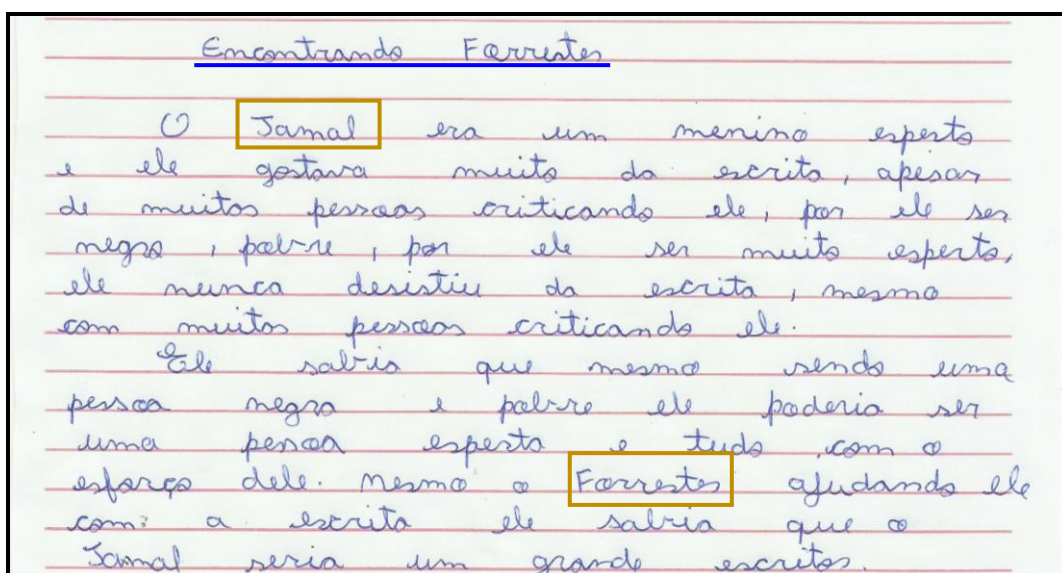 Encontrando Forrestes
O Jamal era um menino esperto
e ele gostava muito da escrita, apesar
de muitas pessoas criticando ele, por ele ser
negro, pobre, por ele ser muito esperto,
ele nunca desistiu da escrita, mesmo
com muitas pessoas criticando ele.
Ele sabia que mesmo sendo uma
pessoa negra e pobre ele poderia ser
uma pessoa esperta e tudo com o
esforço dele. mesmo o Forrestes ajudando ele
com a escrita ele sabia que o
Jamal seria um grande escritor.